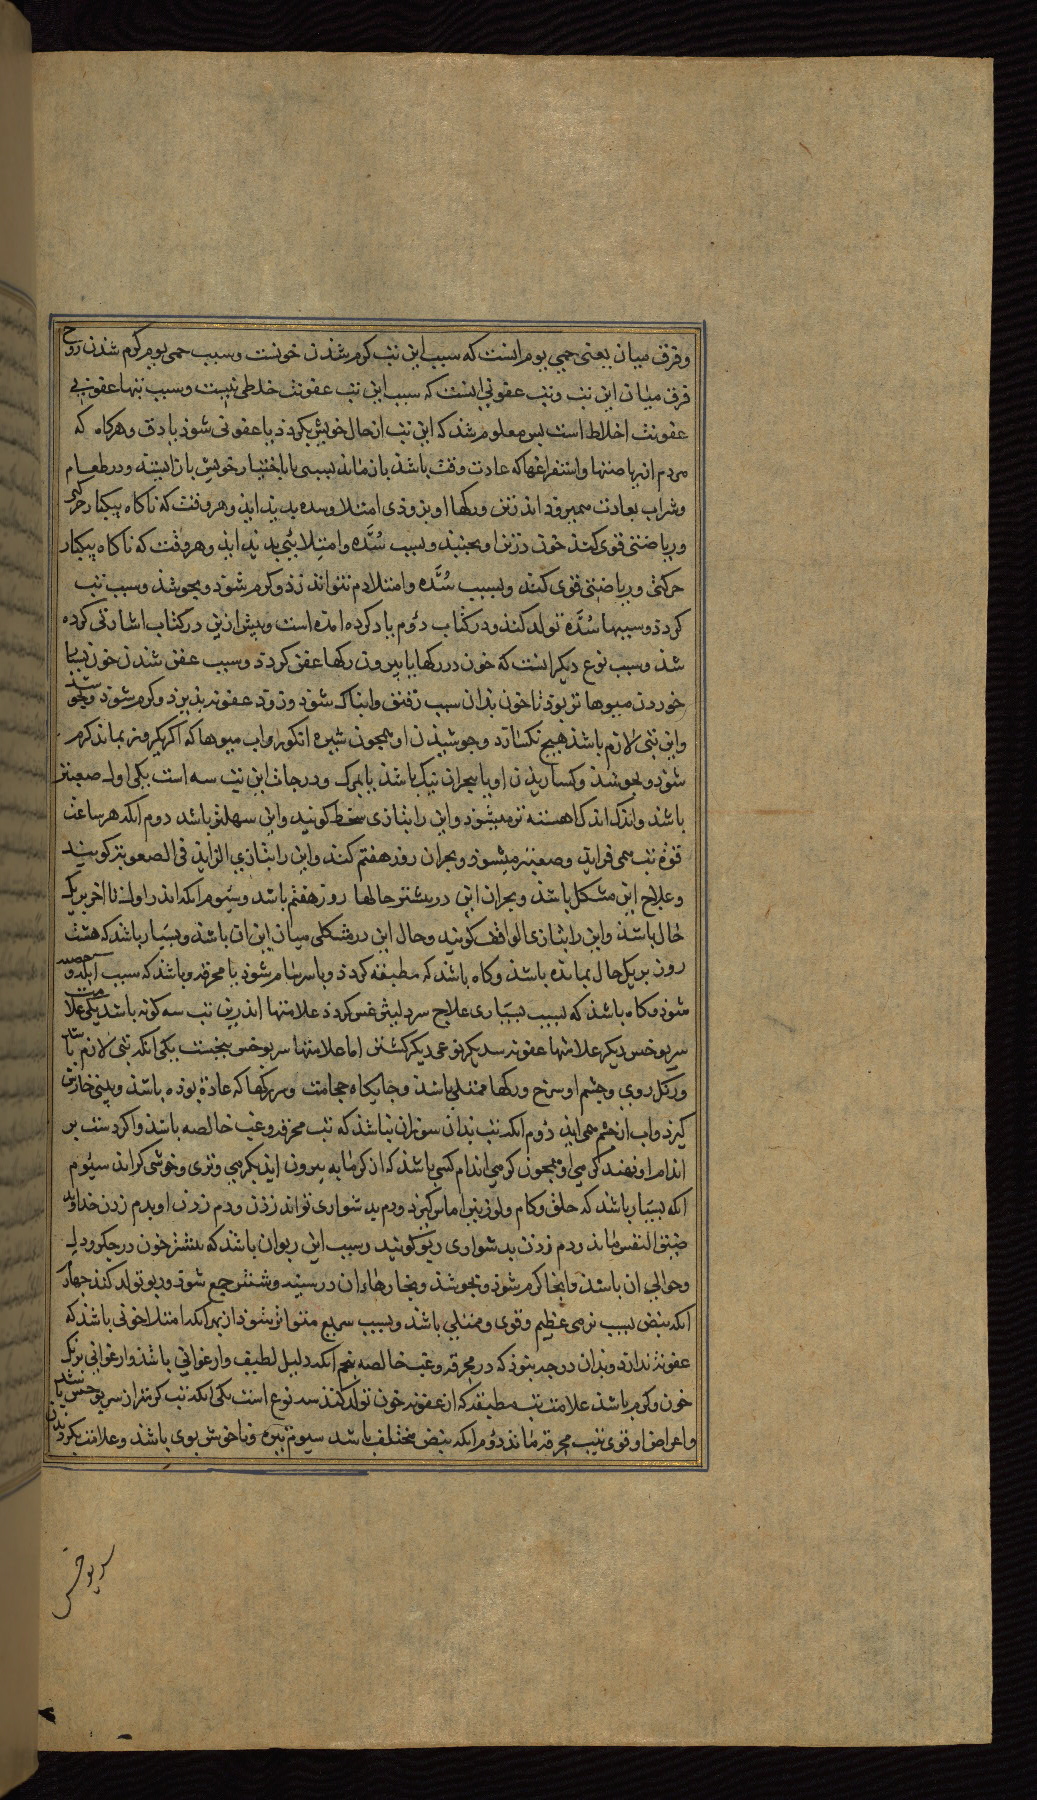 وفرق میان یعنی حمی یوم انست که سبب این تب کرم شذن خونست وسبب حمی یوم کرم شذن روح
فرق میان این تب وتب عفونی انست که سبب این تب عفونت خلطی نیست وسبب تبها عفونی
عفونت اخلاط است پس معلوم شذ که این تب از حال خویش بکردذ یا عفونی شوذ یا دق وهرکاه که
مردم از ریاضتها واستفراغها که عادت وقت باشذ باز ماند بسببی یا باختیار خویش باز ایستد ودر طعام
وشراب بعادت میروذ اندر تن ورکها او بزوذی امتلا وسده بدید اید وهر وقت که ناکاه بیکبار حرکتی
وریاضتی قوی کند خون در تن او بجنبد وبسبب سُدَّه وامتلائی بدید اید وهر وقت که ناکاه بیکبار
حرکتی وریاضتی قوی کند وبسبب سُدَّه وامتلا دم نتواند زذ وکرم شوذ وبجوشذ وسبب تب
کردذ وسببها سُدَّه تولد کند ودر کتاب دوم یاد کرده امده است وپیش ازین در کتاب اشارتی کرده
شذ وسبب نوع دیکر انست که خون در رکها یا بیرون رکها عفن کردذ وسبب عفن شذن خون بسیار
خوردن میوها تر بوذ تا خون بذان سبب رقیق وابناک شوذ وزوذ عفونه بذیرذ وکرم شوذ وبجوشذ
واین تبی لازم باشذ هیچ نکسارد وجوشیذن او همچون شیره انکور واب میوها که اکر یکروز بماند کرم
شوذ وبجوشذ وکساریذن او یا ببحران نیک باشذ یا بمرک ودرجات این تب سه است یکی اول صعبتر
باشذ واندک اندک اهسته تر میشوذ واین را بتازی منحط کویند واین سهلتر باشد دوم انکه هر ساعت
قوة تب می فزاید وصعبتر میشوذ وبحران روز هفتم کند واین را بتازی الزاید فی الصعوبة کویند
وعلاج این مشکل باشذ وبحران این در بیشتر حالها روز هفتم باشد وسیوم انکه اندر اول تا اخر بریک
حال باشذ واین را بتازی الواقف کویند وحال این در مشکلی میان این ان باشذ وبسیار باشذ که هشت
روز بریک حال بمانده باشذ وکاه باشذ که مطبقه کردذ ویا سرسام شوذ یا محرقه وباشذ که سبب ابله و حصبه
شوذ وکاه باشذ که بسبب بسیاری علاج سرد لیثرغس کردذ علامتها اندرین تب سه کونه باشد یکی علامت
سریوخس دیکر علامتها عفونه سدیکر نوعی دیکر کشتن اما علامتها سریوخس پنجست یکی انکه تبی لازم باشد
ورنک روی وچشم او سرخ ورکها ممتلی باشذ وجایکاه حجامت وسررکها که عادة بوذه باشذ وبینی خارش
کیرذ واب از چشم همی ایذ دوم انکه تب بذان سوزانی نباشذ که تب محرقه وغب خالصه باشذ واکر دست بر
اندام او نهند کرمی او همچون کرمی اندام کسی باشذ که از کرمابه بیرون ایذ بکرمی وتری وخوشی کراید سیوم
انکه بسیار باشذ که حلق وکام ولوزتین اماس کیرذ ودم بدشواری تواند زذن ودم زذن او بدم زذن خداوند
ضیق النفس ماند ودم زذن بدشواری ربو کویند وسبب این ربو ان باشذ که بیشتر خون در جکر ودل
وحوالی ان باشذ وانجا کرم شوذ وبجوشذ وبخارهاء ان در سینه وشش جمع شوذ وربو تولد کند چهارم
انکه نبض بسبب نرمی عظیم وقوی وممتلی باشذ وبسبب سریع متواتر شوذ از بهر انکه امتلا خونی باشذ که
عفونة ندارذ وبذان درجه نبوذ که در محرقه وغب خالصه پنجم انکه دلیل لطیف وارغوانی باشذ وارغوانی برنک
خون وکرم باشذ علامت تب مطبقه که از عفونه خون تولد کند سه نوع است یکی انکه تب کرمتر از سریوخس باشد
واعراض او قوی بتب محرقه ماند دوم انکه نبض مختلف باشد سیوم تیره وناخوش بوی باشد وعلامت بکردیدن
سریوخس